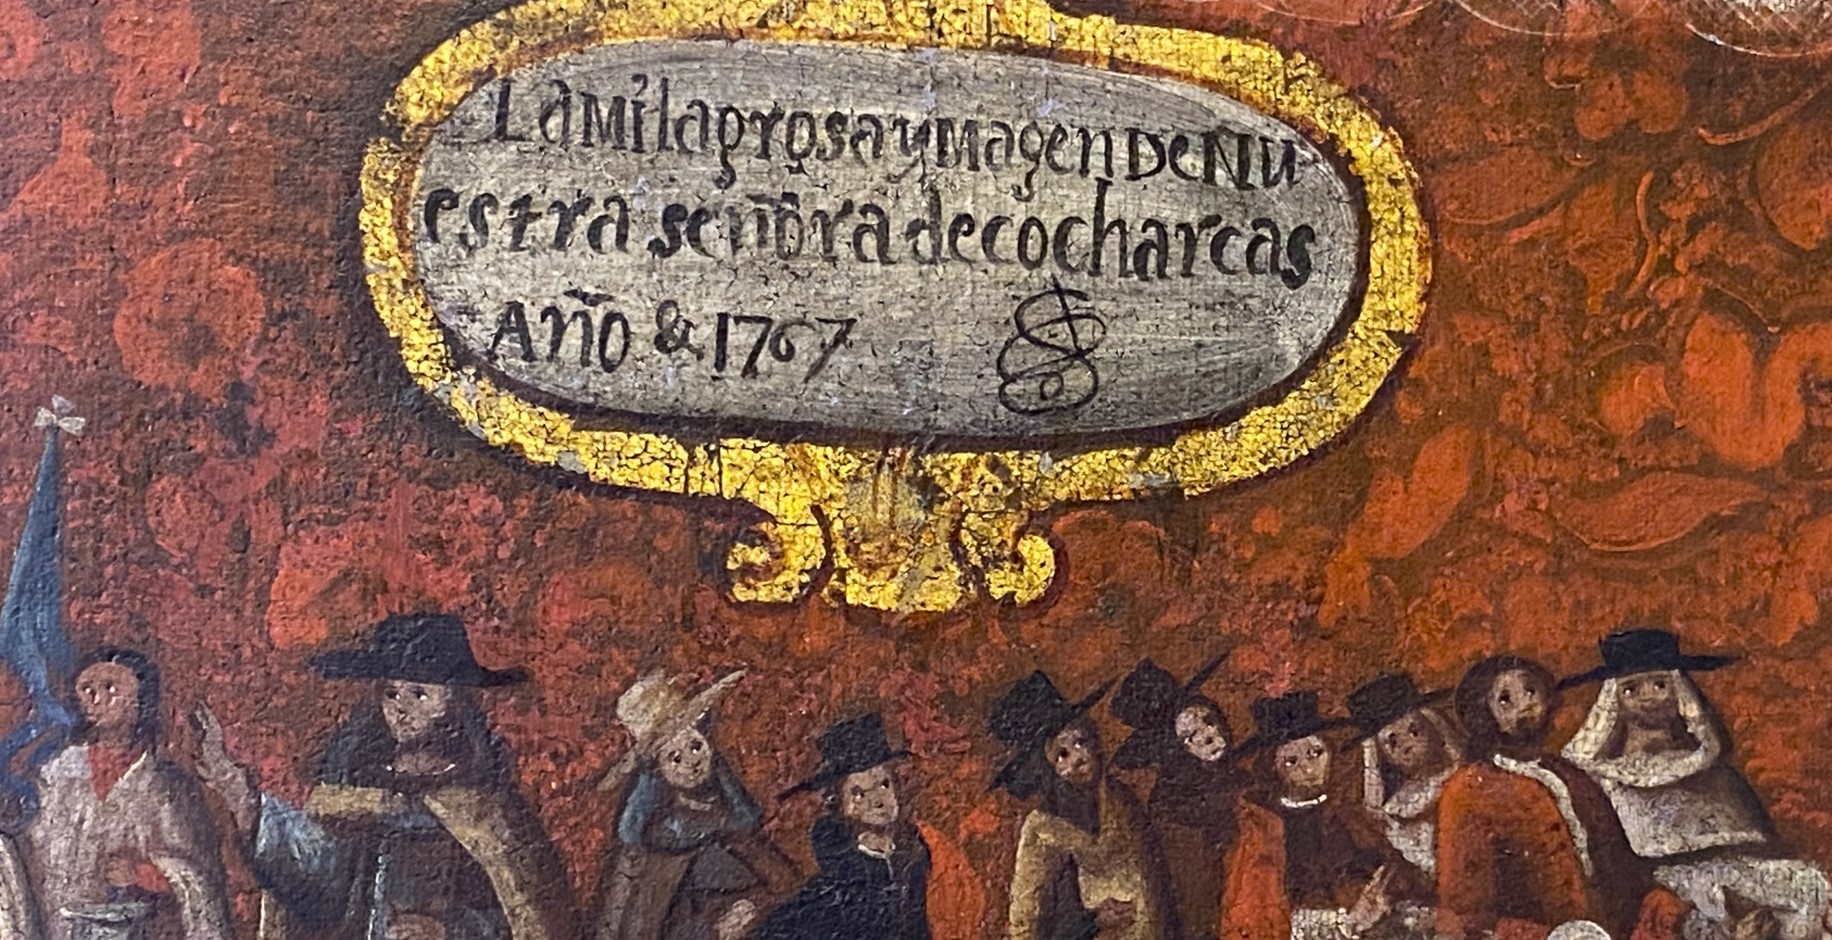 La Milagrosa yMagen De NU
estra señora de cocharcas
Año & 1767